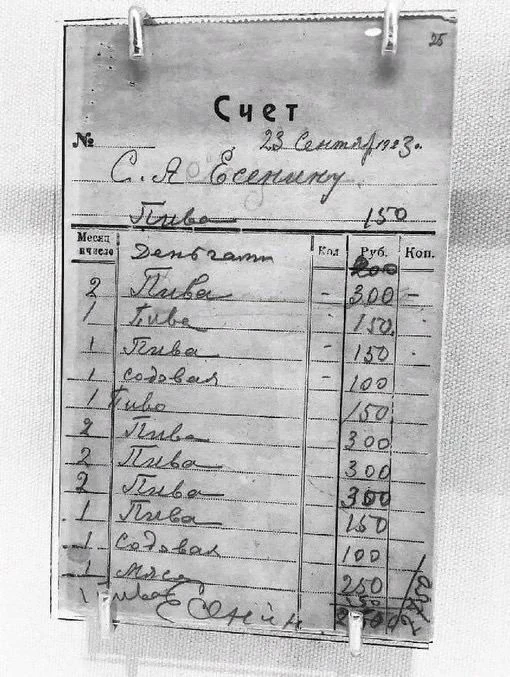 25
Счет
№ 23 Сентяр 1923г.
С. А Есенину
Пива 150
Месяц и число Кол Руб. Коп.
Деньгами 200
2 Пива - 300 -
1 Пива - 150
1 Пива - 150
1 содовая - 100
1 Пиво 150
2 Пива 300
2 Пива 300
2 Пива 300
1 Пива 150
1 Содовая 100
1 мясо 250
1 Пива
Есенин